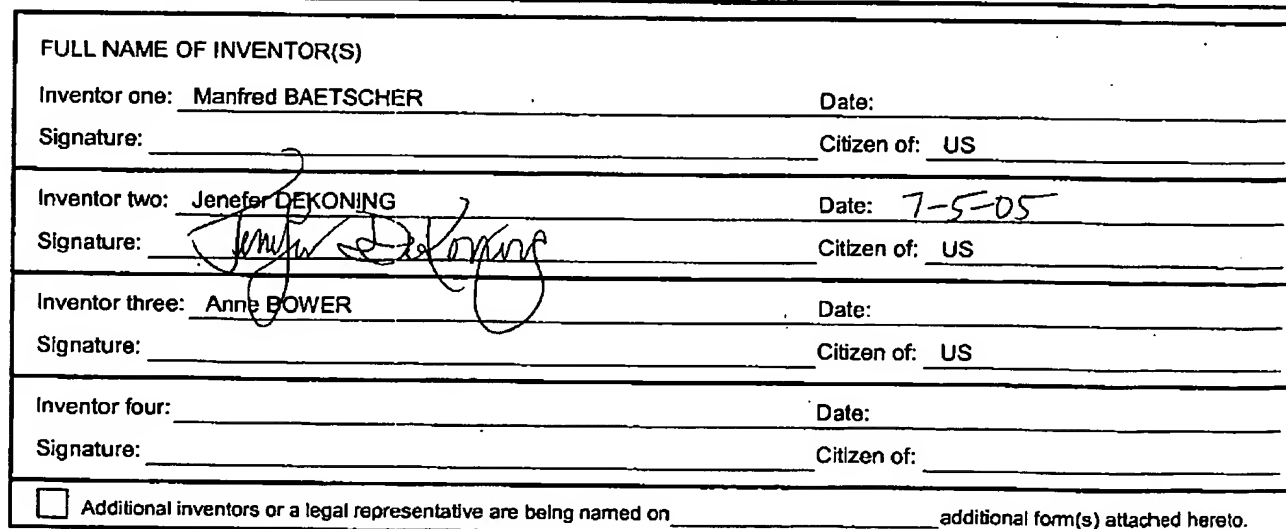 FULL NAME OF INVENTOR(S)
Inventor one: Manfred BAETSCHER Date:
Signature: Citizen of: US
Inventor two: Jenefer DEKONING Date: 7-5-05
Signature: Jenefer DeKoning Citizen of: US
Inventor three: Anne BOWER Date:
Signature: Citizen of: US
Inventor four: Date:
Signature: Citizen of:
Additional inventors or a legal representative are being named on additional form(s) attached hereto.